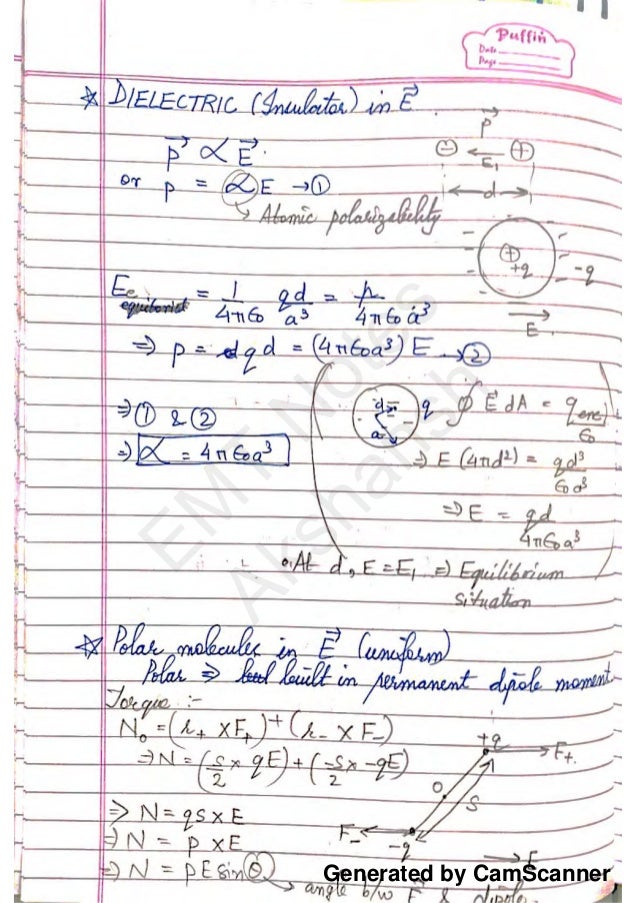 Puffin
Date
Page
☆ DIELECTRIC (Insulator) in E⃗
p⃗ ∝ E⃗.
or p = αE → ①
↳ Atomic polarizability
p⃗
⊖ ← ⊕
E₁
← d →
⊕
+q
-q
E
Ee = 1/4πϵ₀ qd/a³ = p/4πϵ₀a³
⇒ p = qd = (4πϵ₀a³) E → ②
⇒ ① & ②
⇒ α = 4πϵ₀a³
d
a
q
∮ E⃗ dA = q enc/ϵ₀
⇒ E (4πd²) = qd³/ϵ₀a³
⇒ E = qd/4πϵ₀a³
∴ At d, E = E₁ ⇒ Equilibrium
situation
☆ Polar molecules in E⃗ (uniform)
Polar ⇒ built in permanent dipole moment
Torque :-
N₀ = (r₊ × F₊) + (r₋ × F₋)
⇒ N = (s/2 × qE) + (-s/2 × -qE)
⇒ N = qs × E
⇒ N = p × E
⇒ N = pE sin θ
↳ angle b/w E⃗ & dipole.
+q
F₊
O
S
F₋
-q
E
EMT Notes
Akshansh
Generated by CamScanner